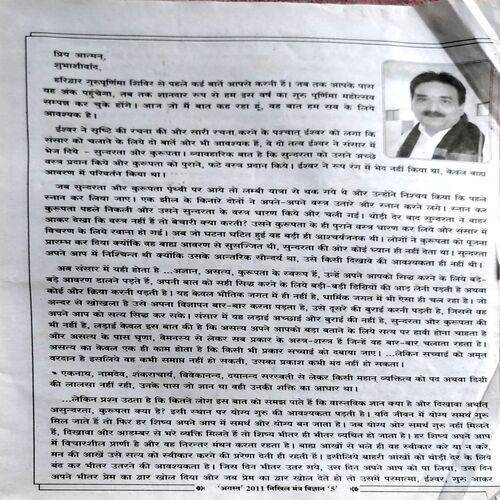 प्रिय आत्मन्,
शुभाशीर्वाद,
हरिद्वार गुरुपूर्णिमा शिविर से पहले कई बातें आपसे करनी हैं। जब तक आपके पास
यह अंक पहुंचेगा, तब तक शानदार रूप से हम इस वर्ष का गुरु पूर्णिमा महोत्सव
सम्पन्न कर चुके होंगे। आज जो मैं बात कह रहा हूं, वह बात हम सब के लिये
आवश्यक है।
ईश्वर ने सृष्टि की रचना की और सारी रचना करने के पश्चात् ईश्वर को लगा कि
संसार को चलाने के लिये दो बातें और भी आवश्यक हैं, वे दो तत्व ईश्वर ने संसार में
भेज दिये - सुन्दरता और कुरूपता। व्यावहारिक बात है कि सुन्दरता को उसने अच्छे
वस्त्र प्रदान किये और कुरूपता को पुराने, फटे वस्त्र प्रदान किये। ईश्वर ने रूप रंग में भेद नहीं किया था, केवल बाह्य
आवरण में परिवर्तन किया था।
जब सुन्दरता और कुरूपता पृथ्वी पर आये तो लम्बी यात्रा से थक गये थे और उन्होंने निश्चय किया कि पहले
स्नान कर लिया जाए। एक झील के किनारे दोनों ने अपने-अपने वस्त्र उतारे और स्नान करने लगे। स्नान कर
कुरूपता पहले निकली और उसने सुन्दरता के वस्त्र धारण किये और चली गई। थोड़ी देर बाद सुन्दरता ने बाहर
आकर देखा कि वस्त्र नहीं हैं तो बेचारी क्या करती? उसने कुरूपता के ही पुराने वस्त्र धारण कर लिये और संसार में
विचरण के लिये रवाना हो गई। अब जो घटना घटित हुई वह बड़ी ही आश्चर्यजनक थी। लोगों ने कुरूपता को पूजना
प्रारम्भ कर दिया क्योंकि वह बाह्य आवरण से सुसज्जित थी, सुन्दरता की ओर कोई ध्यान ही नहीं देता था। सुन्दरता
अपने आप में निश्चिन्त थी क्योंकि उसके आन्तरिक सौन्दर्य था, उसे किसी दिखावे की आवश्यकता ही नहीं थी।
अब संसार में यही होता है ...अज्ञान, असत्य, कुरूपता के स्वरूप हैं, उन्हें अपने आपको सिद्ध करने के लिये बड़े-
बड़े आवरण डालने पड़ते हैं, अपनी बात को सही सिद्ध करने के लिये बड़ी-बड़ी डिग्रियों की आड़ लेनी पड़ती है अथवा
कोई और क्रिया करनी पड़ती है। यह केवल भौतिक जगत में ही नहीं है, धार्मिक जगत में भी ऐसा ही चल रहा है। जो
अन्दर से खोखला है उसे अपना विज्ञापन बार-बार करना पड़ता है, उसे दूसरे की बुराई करनी पड़ती है, जिससे वह
अपने आप को सत्य सिद्ध कर सके। संसार में यह लड़ाई अच्छाई और बुराई की नहीं है, सुन्दरता और कुरूपता की
भी नहीं है, लड़ाई केवल इस बात की है कि असत्य अपने आपको बड़ा बताने के लिये सत्य पर हावी होना चाहता है
और असत्य के पास घृणा, वैमनस्य से लेकर सब प्रकार के अस्त्र-शस्त्र हैं जिन्हें वह बार-बार चलाता रहता है।
असत्य का केवल एक ही काम होता है कि किसी भी प्रकार सच्चाई को दबाया जाए। ...लेकिन सच्चाई को अमृत
वरदान है इसलिये वह कभी समाप्त नहीं हो सकती, उसका प्रकाश कभी मन्द नहीं हो सकता।
एकनाथ, नामदेव, शंकराचार्य, विवेकानन्द, दयानन्द सरस्वती से लेकर किसी महान् व्यक्तित्व को पद अथवा डिग्री
की लालसा नहीं रही, उनके पास जो ज्ञान था वही उनकी शक्ति का आधार था।
...लेकिन प्रश्न उठता है कि कितने लोग इस बात को समझ पाते हैं कि वास्तविक ज्ञान क्या है और दिखावा अर्थात्
असुन्दरता, कुरूपता क्या है? इसी स्थान पर योग्य गुरु की आवश्यकता पड़ती है। यदि जीवन में योग्य समर्थ गुरु
मिल जाते हैं तो फिर हर शिष्य अपने आप में समर्थ और योग्य बन जाता है। जब योग्य और समर्थ गुरु नहीं मिलते
हैं, दिखावा और आडम्बर से भरे व्यक्ति मिलते हैं तो शिष्य भीतर ही भीतर व्यथित हो जाता है। हर शिष्य अपने आप
में विचारशील प्राणी है और वह निरन्तर मंथन करता रहता है। बाह्य आंखों से भले ही वह स्वीकार करे या न करे,
मन की आंखें उसे सत्य को स्वीकार करने की प्रेरणा देती ही रहती हैं। इसीलिये बाहरी आंखों को थोड़ी देर के लिये
बंद कर भीतर उतरने की आवश्यकता है। जिस दिन भीतर उतर गये, उस दिन अपने आप को पा लिया, उस दिन
अपने भीतर प्रेम का द्वार खोल दिया और जब आप प्रेम का द्वार खोल देते हो तो उसमें परमात्मा, ईश्वर, गुरु आकर
'अगस्त' 2011 निखिल मंत्र विज्ञान '5'